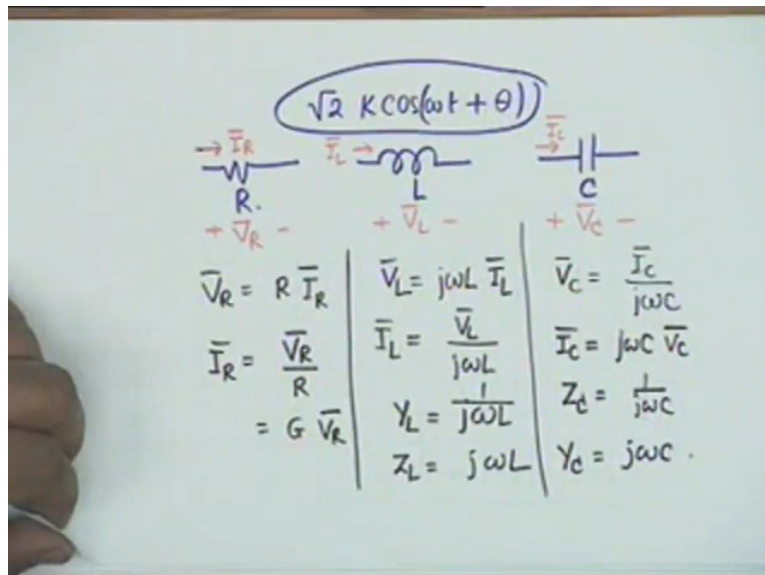 √2 K cos(ωt + θ)
→ I̅R I̅L → I̅C →
R. L C
+ V̅R - + V̅L - + V̅C -
V̅R = R I̅R
I̅R = V̅R / R
= G V̅R
V̅L = jωL I̅L
I̅L = V̅L / jωL
YL = 1 / jωL
ZL = jωL
V̅C = I̅C / jωC
I̅C = jωC V̅C
ZC = 1 / jωC
YC = jωC .